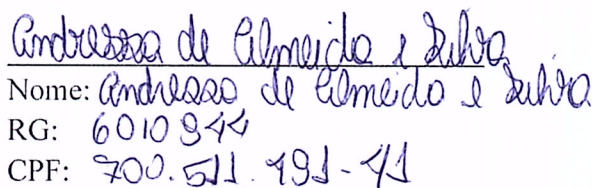 Andressa de Almeida e Silva
Nome: Andressa de Almeida e Silva
RG: 6010944
CPF: 700.511.191-41